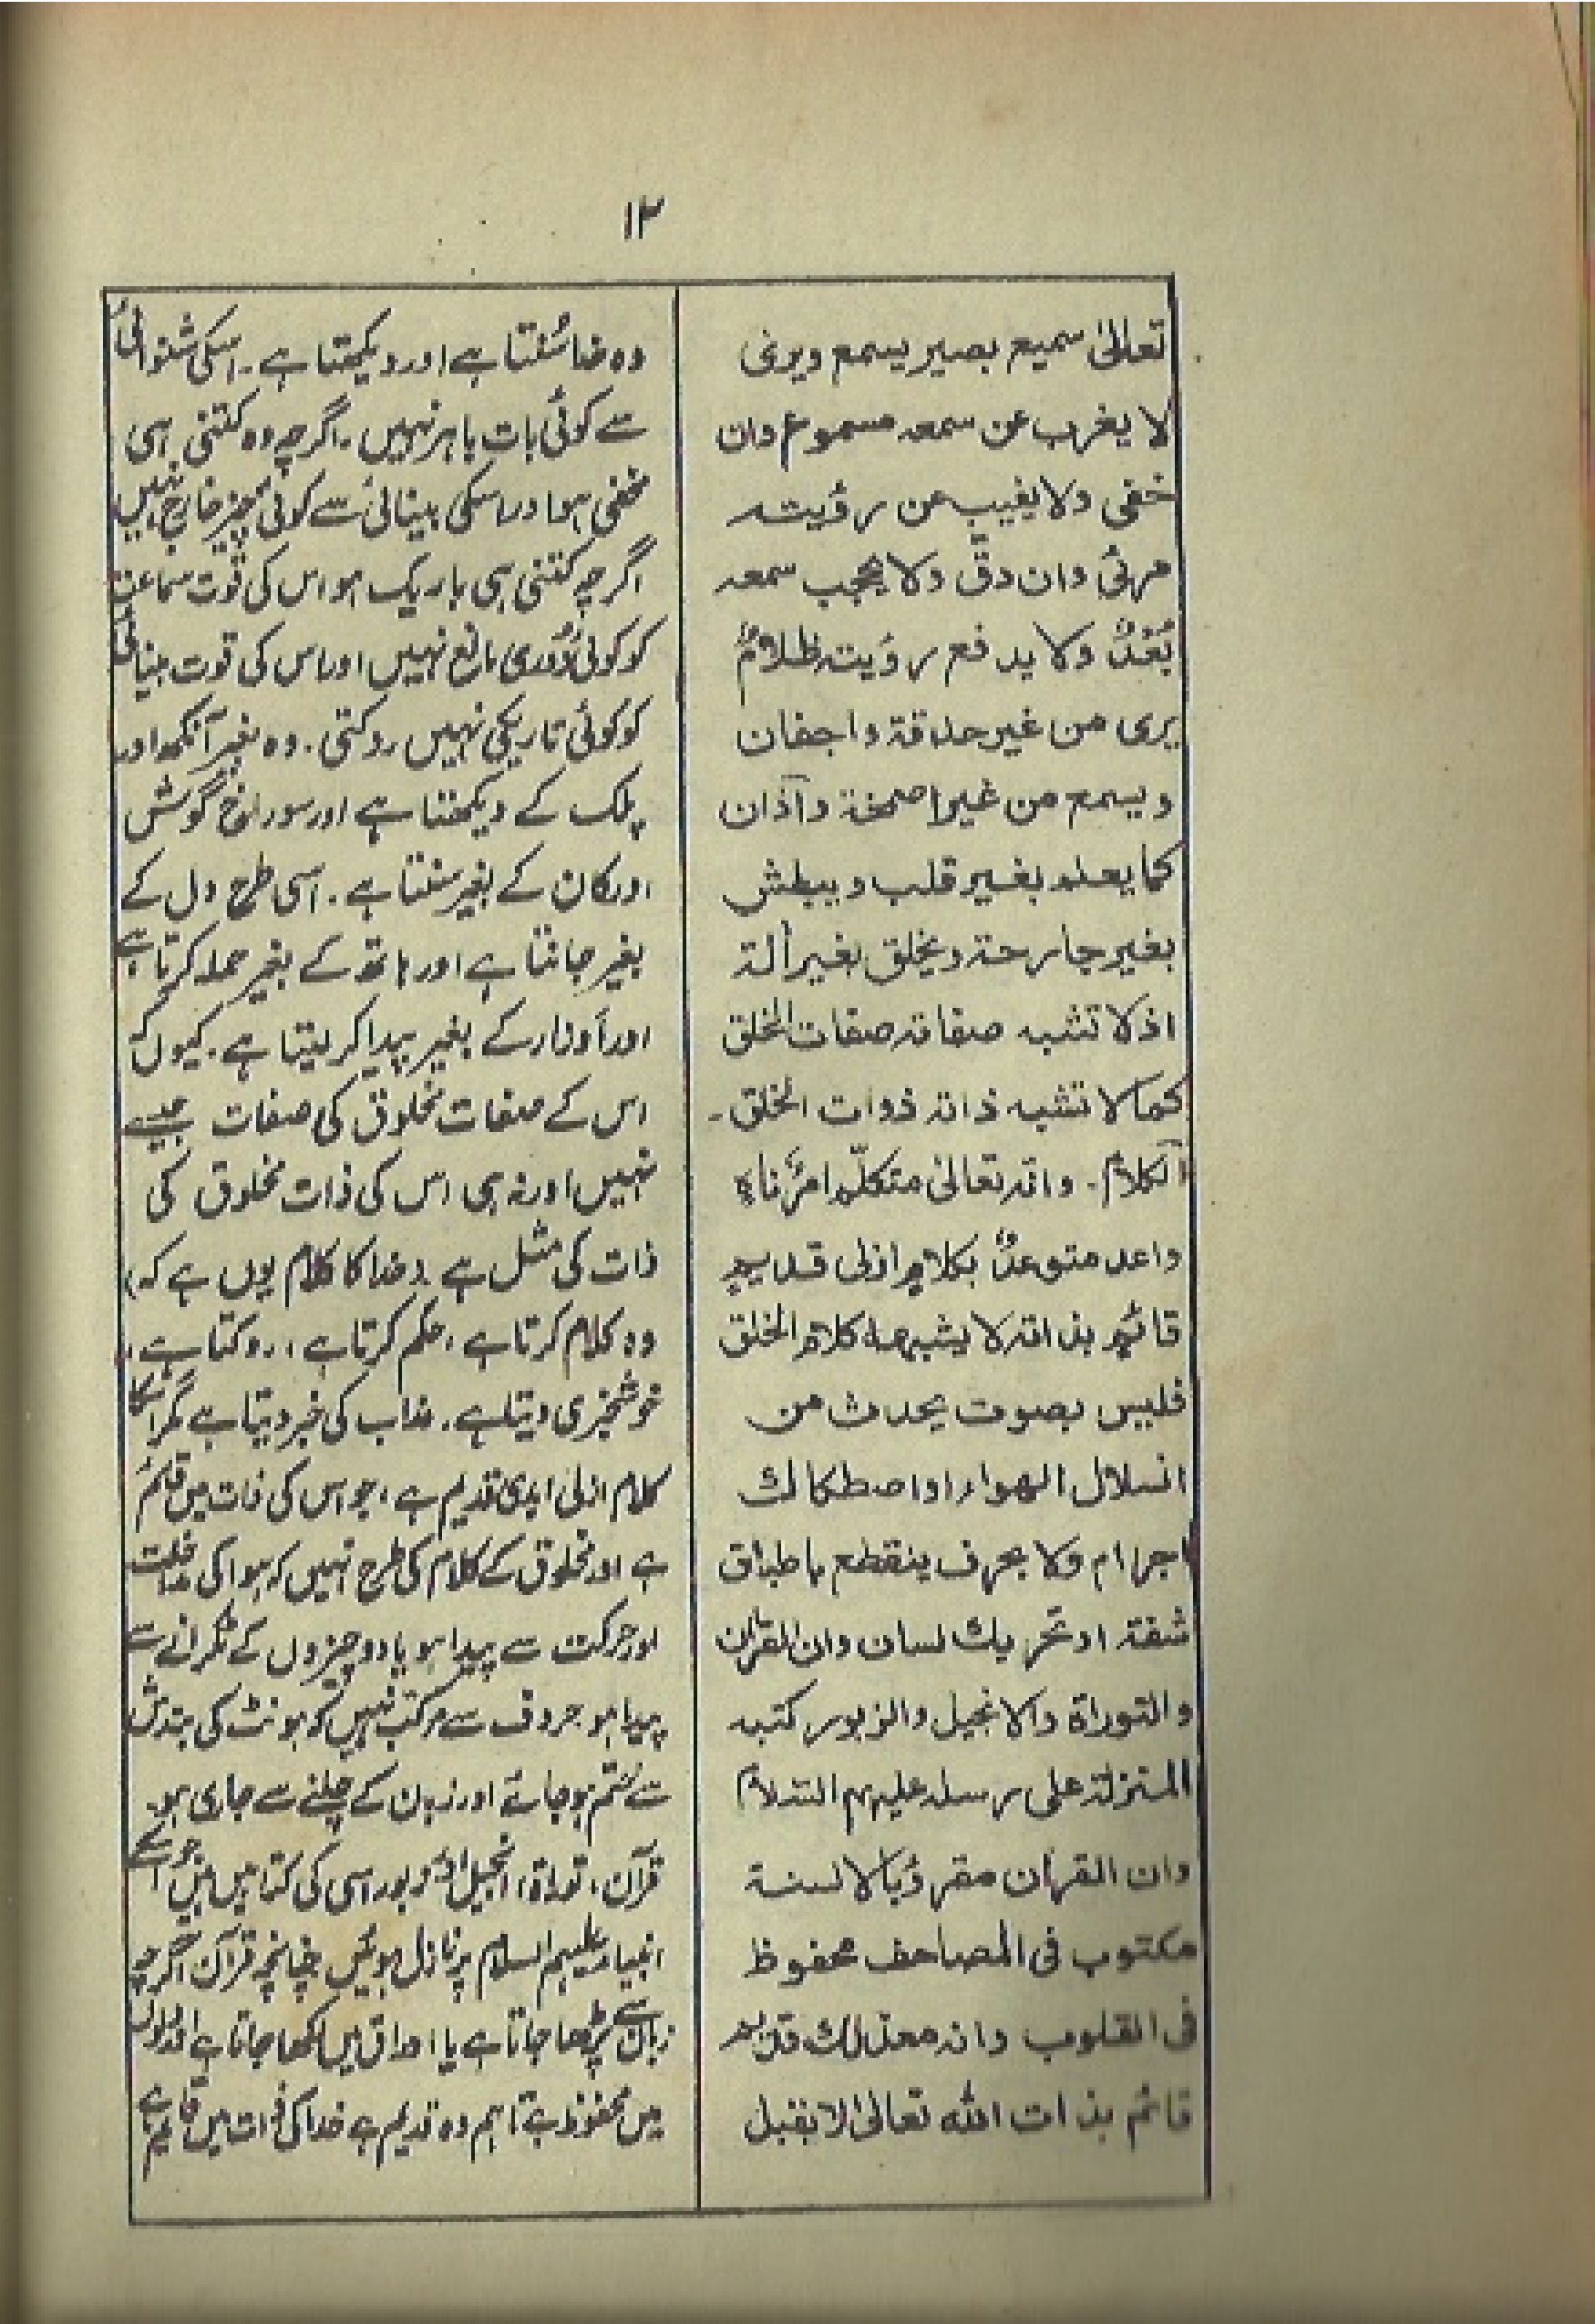 ۱۲
تعالیٰ سمیع بصیر یسمع ویریٰ
لا یغرب عن سمعہ مسموع وان
خفی ولا یغیب عن رؤیتہ
مرئی وان دقّ ولا یحجب سمعہ
بُعْدٌ ولا یدفع رؤیتہ ظلامٌ
یری من غیر حدقۃ واجفان
ویسمع من غیر اصمخۃ وآذان
کما یعلم بغیر قلب ویبطش
بغیر جارحۃ ویخلق بغیر اٰلۃ
اذ لا تشبہ صفاتہ صفات الخلق
کما لا تشبہ ذاتہ ذوات الخلق ۔
الکلام ۔ وانہ تعالیٰ متکلّم اٰمرٌ ناہٍ
واعد متوعدٌ بکلامٍ ازلی قدیمٍ
قائمٍ بذاتہ لا یشبھہ کلام الخلق
فلیس بصوت یحدث من
انسلال الھواء او اصطکاک
اجرام ولا بحرف ینقطع باطباق
شفۃ او تحریک لسان وان القراٰن
والتوراۃ والانجیل والزبور کتبہ
المنزلۃ علی رسلہ علیہم السلام
وان القراٰن مقروٌ بالالسنۃ
مکتوب فی المصاحف محفوظ
فی القلوب وانہ مع ذلک قدیم
قائم بذات اللہ تعالیٰ لا یقبل
وہ خدا سُنتا ہے اور دیکھتا ہے ۔ اسکی شنوائی
سے کوئی بات باہر نہیں ۔ اگرچہ وہ کتنی ہی
مخفی ہو اور اسکی بینائی سے کوئی چیز خارج نہیں
اگرچہ کتنی ہی باریک ہو اس کی قوت سماعت
کو کوئی دُوری مانع نہیں اور اس کی قوت بینائی
کو کوئی تاریکی نہیں روکتی ۔ وہ بغیر آنکھ اور
پلک کے دیکھتا ہے اور سوراخ گوش
اور کان کے بغیر سنتا ہے ۔ اسی طرح دل کے
بغیر جانتا ہے اور ہاتھ کے بغیر حملہ کرتا ہے
اور اَوزار کے بغیر پیدا کر لیتا ہے ۔ کیوں کہ
اس کے صفات مخلوق کی صفات جیسے
نہیں اور نہ ہی اس کی ذات مخلوق کی
ذات کی مثل ہے (خدا کا کلام یوں ہے کہ)
وہ کلام کرتا ہے ، حکم کرتا ہے ، روکتا ہے ،
خوشخبری دیتا ہے ۔ عذاب کی خبر دیتا ہے مگر اسکا
کلام ازلی ابدی قدیم ہے ، جو اس کی ذات میں قائم
ہے اور مخلوق کے کلام کی طرح نہیں کہ ہوا کی
اور حرکت سے پیدا ہو یا دو چیزوں کے ٹکرانے سے
پیدا ہو حروف سے مرکب نہیں کہ ہونٹ کی بندش
سے ختم ہو جائے اور زبان کے چلنے سے جاری ہو ۔
قرآن ، توراۃ ، انجیل اور زبور اسی کی کتابیں ہیں جو اسکے
انبیاء علیہم السلام پر نازل ہوئیں چنانچہ قرآن اگرچہ
زبان سے پڑھا جاتا ہے یا اوراق میں لکھا جاتا ہے اور دلوں
میں محفوظ ہے تاہم وہ قدیم ہے خدا کی ذات میں قائم ہے